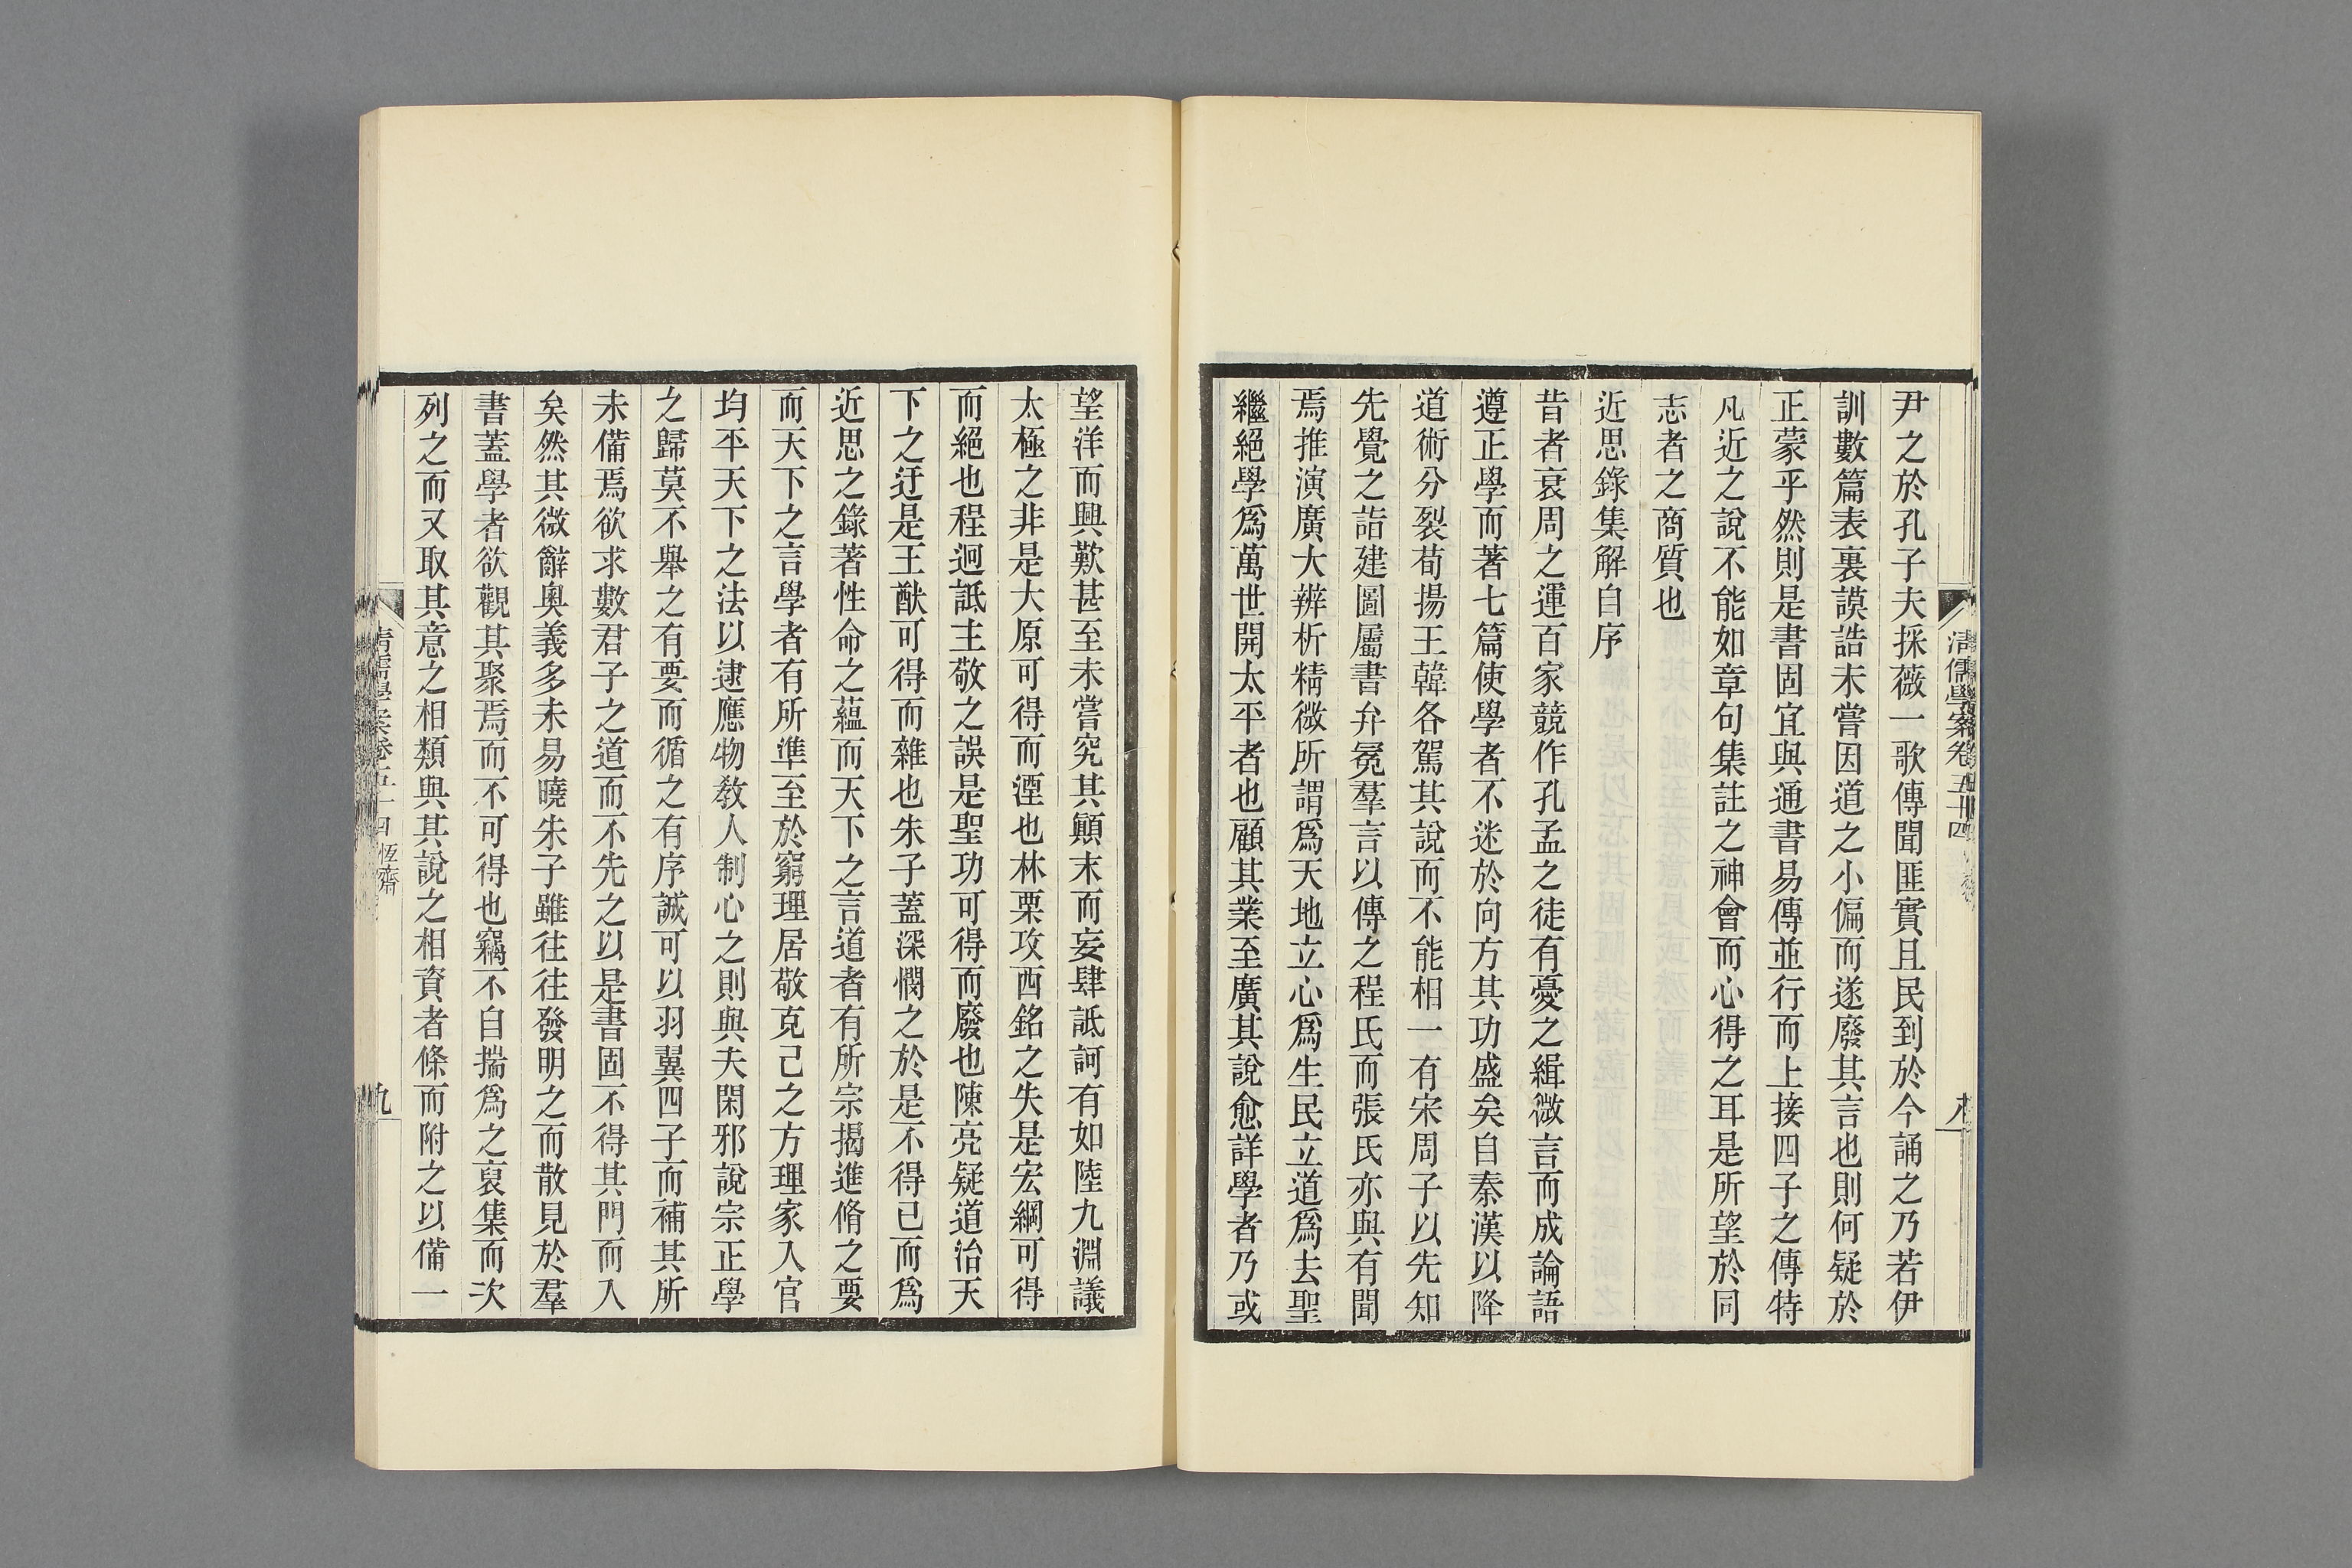 清儒學案卷五十四
尹之於孔子夫採薇一歌傳聞匪實且民到於今誦之乃若伊
訓數篇表裏謨誥未嘗因道之小偏而遂廢其言也則何疑於
正蒙乎然則是書固宜與通書易傳並行而上接四子之傳特
凡近之說不能如章句集註之神會而心得之耳是所望於同
志者之商質也
近思錄集解自序
昔者衰周之運百家競作孔孟之徒有憂之緝微言而成論語
遵正學而著七篇使學者不迷於向方其功盛矣自秦漢以降
道術分裂荀揚王韓各駕其說而不能相一有宋周子以先知
先覺之詣建圖屬書弁冕羣言以傳之程氏而張氏亦與有聞
焉推演廣大辨析精微所謂爲天地立心爲生民立道爲去聖
繼絕學爲萬世開太平者也顧其業至廣其說愈詳學者乃或
望洋而興歎甚至未嘗究其顚末而妄肆詆訶有如陸九淵議
太極之非是大原可得而湮也林栗攻西銘之失是宏綱可得
而絕也程迥詆主敬之誤是聖功可得而廢也陳亮疑道治天
下之迂是王猷可得而雜也朱子蓋深憫之於是不得已而爲
近思之錄著性命之蘊而天下之言道者有所宗揭進脩之要
而天下之言學者有所準至於窮理居敬克己之方理家入官
均平天下之法以逮應物敎人制心之則與夫閑邪說宗正學
之歸莫不舉之有要而循之有序誠可以羽翼四子而補其所
未備焉欲求數君子之道而不先之以是書固不得其門而入
矣然其微辭奧義多未易曉朱子雖往往發明之而散見於羣
書蓋學者欲觀其聚焉而不可得也竊不自揣爲之裒集而次
列之而又取其意之相類與其說之相資者條而附之以備一
清儒學案卷五十四 恆齋
九